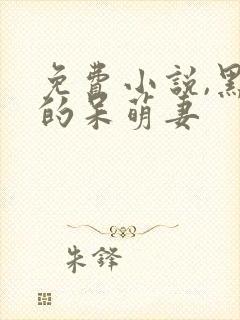 免費小説,黑
的呆萌妻
朱鋒